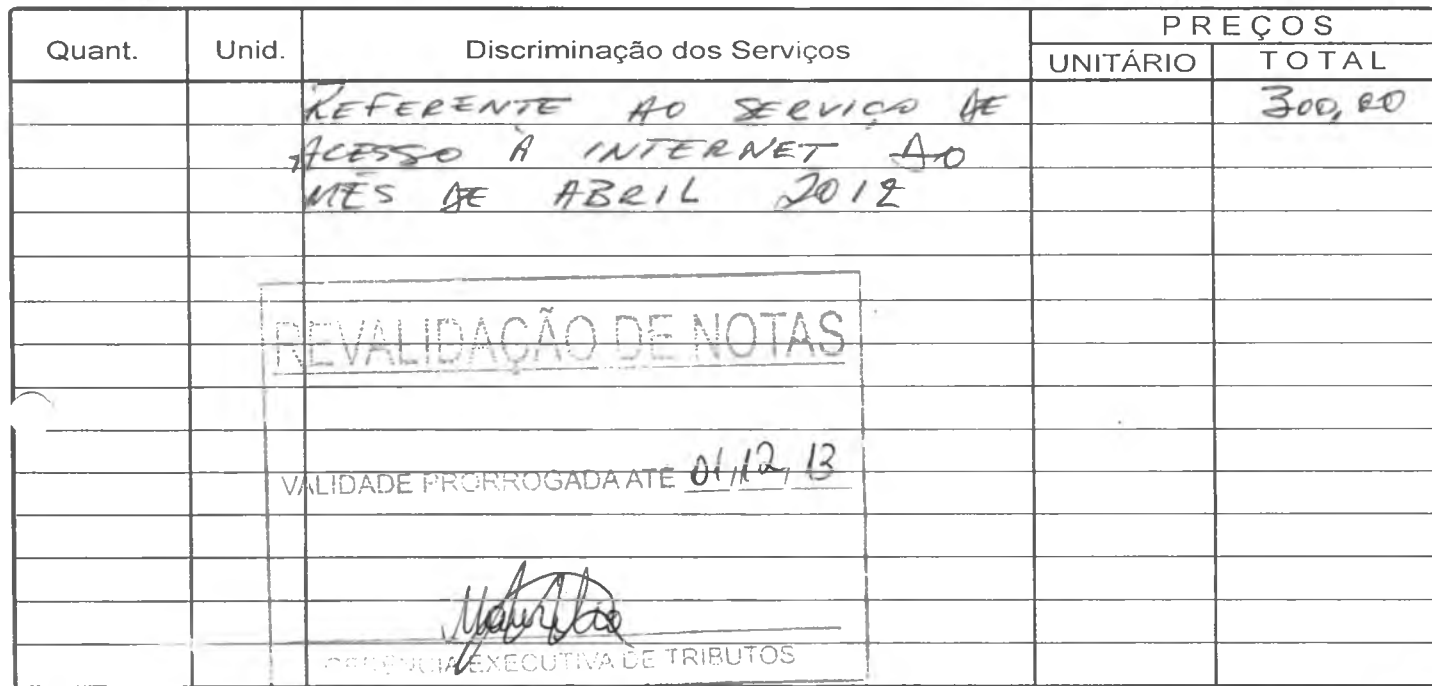 Quant. Unid. Discriminação dos Serviços PREÇOS
UNITÁRIO TOTAL
REFERENTE AO SERVIÇO DE 300,00
ACESSO À INTERNET DO
MÊS DE ABRIL 2012
REVALIDAÇÃO DE NOTAS
VALIDADE PRORROGADA ATE 01/12/13
GERÊNCIA EXECUTIVA DE TRIBUTOS